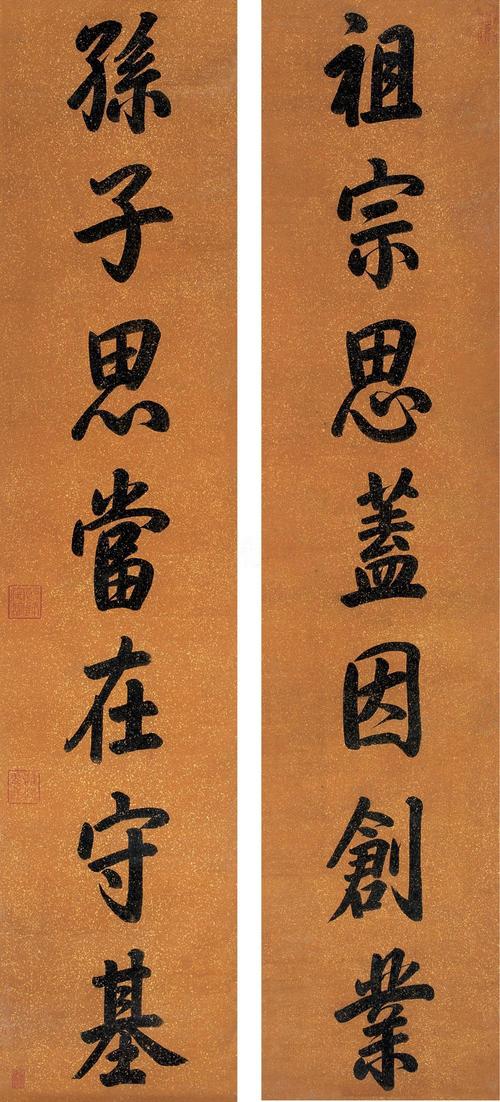 祖宗思蓋因創業
孫子思當在守基